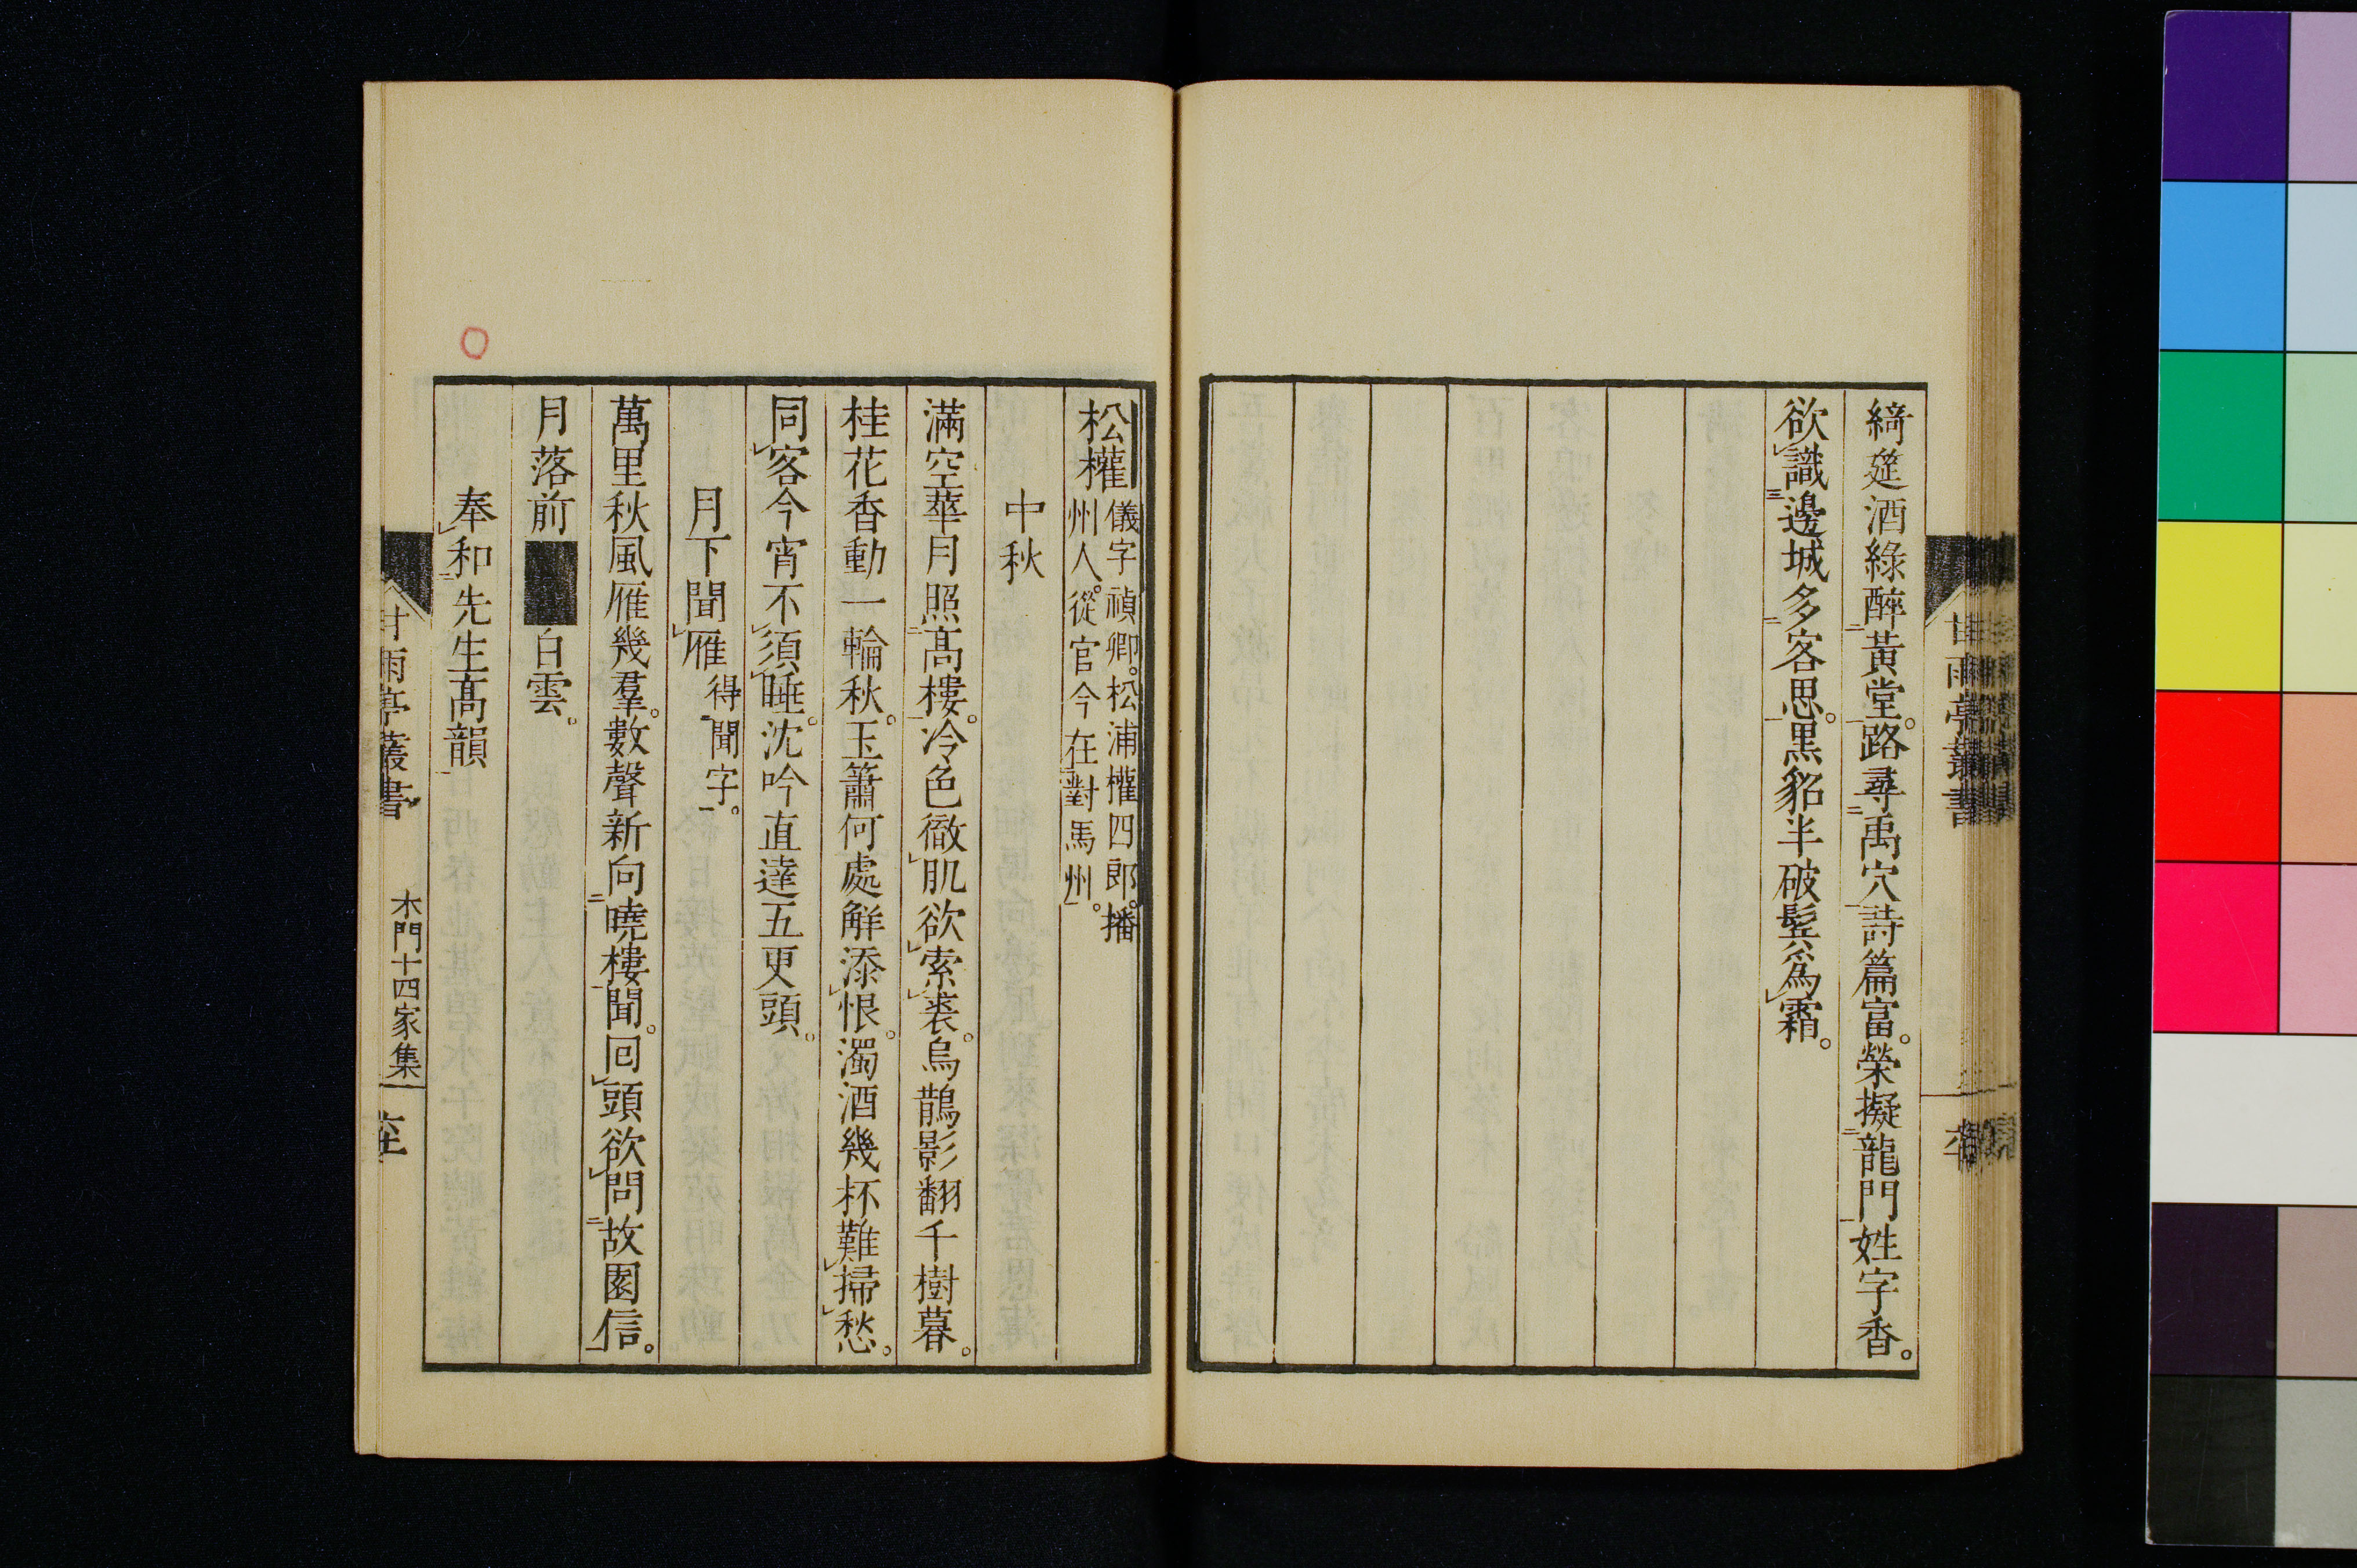 綺筵酒綠醉黃堂。路尋禹穴詩篇富。榮擬龍門姓字香。
欲識邊城多客思。黑貂半破鬂爲霜。
甘雨亭叢書
松權 儀字禎卿。松浦權四郎。播
州人。從官今在對馬州。
中秋
滿空華月照高樓。冷色徹肌欲索裘。烏鵲影翻千樹暮。
桂花香動一輪秋。玉簫何處解添恨。濁酒幾杯難掃愁。
同客今宵不須睡。沈吟直達五更頭。
月下聞雁 得聞字。
萬里秋風雁幾羣。數聲新向曉樓聞。回頭欲問故園信。
月落前 白雲。
奉和先生高韻
甘雨亭叢書 木門十四家集